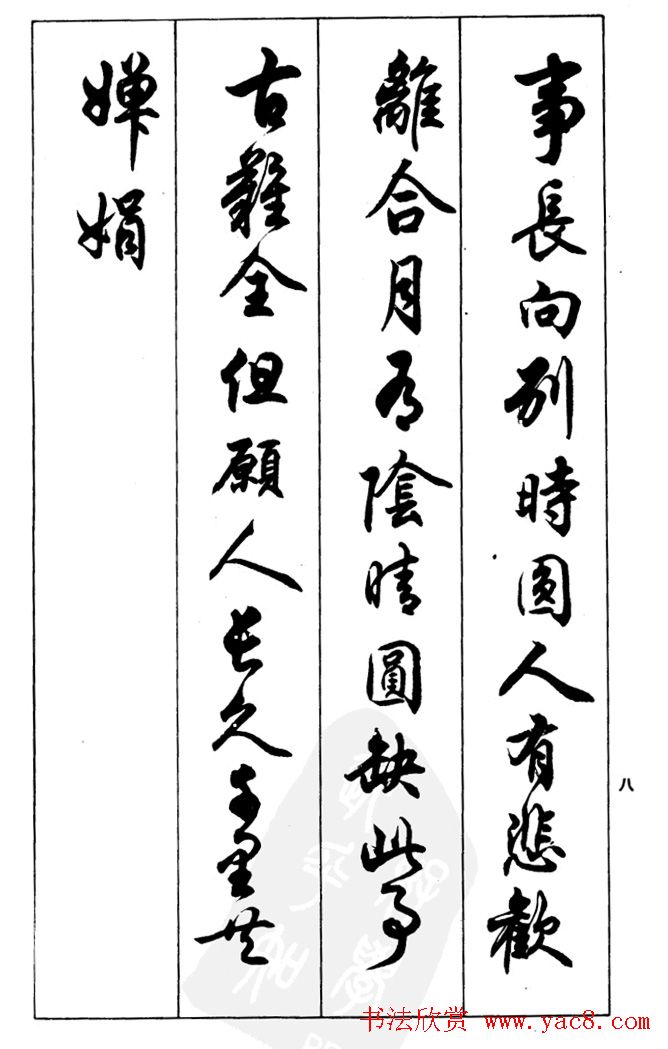 事長向别時圓人有悲歡
離合月有陰晴圓缺此事
古難全但願人長久千里共
嬋娟
八
书法欣赏 www.yac8.com